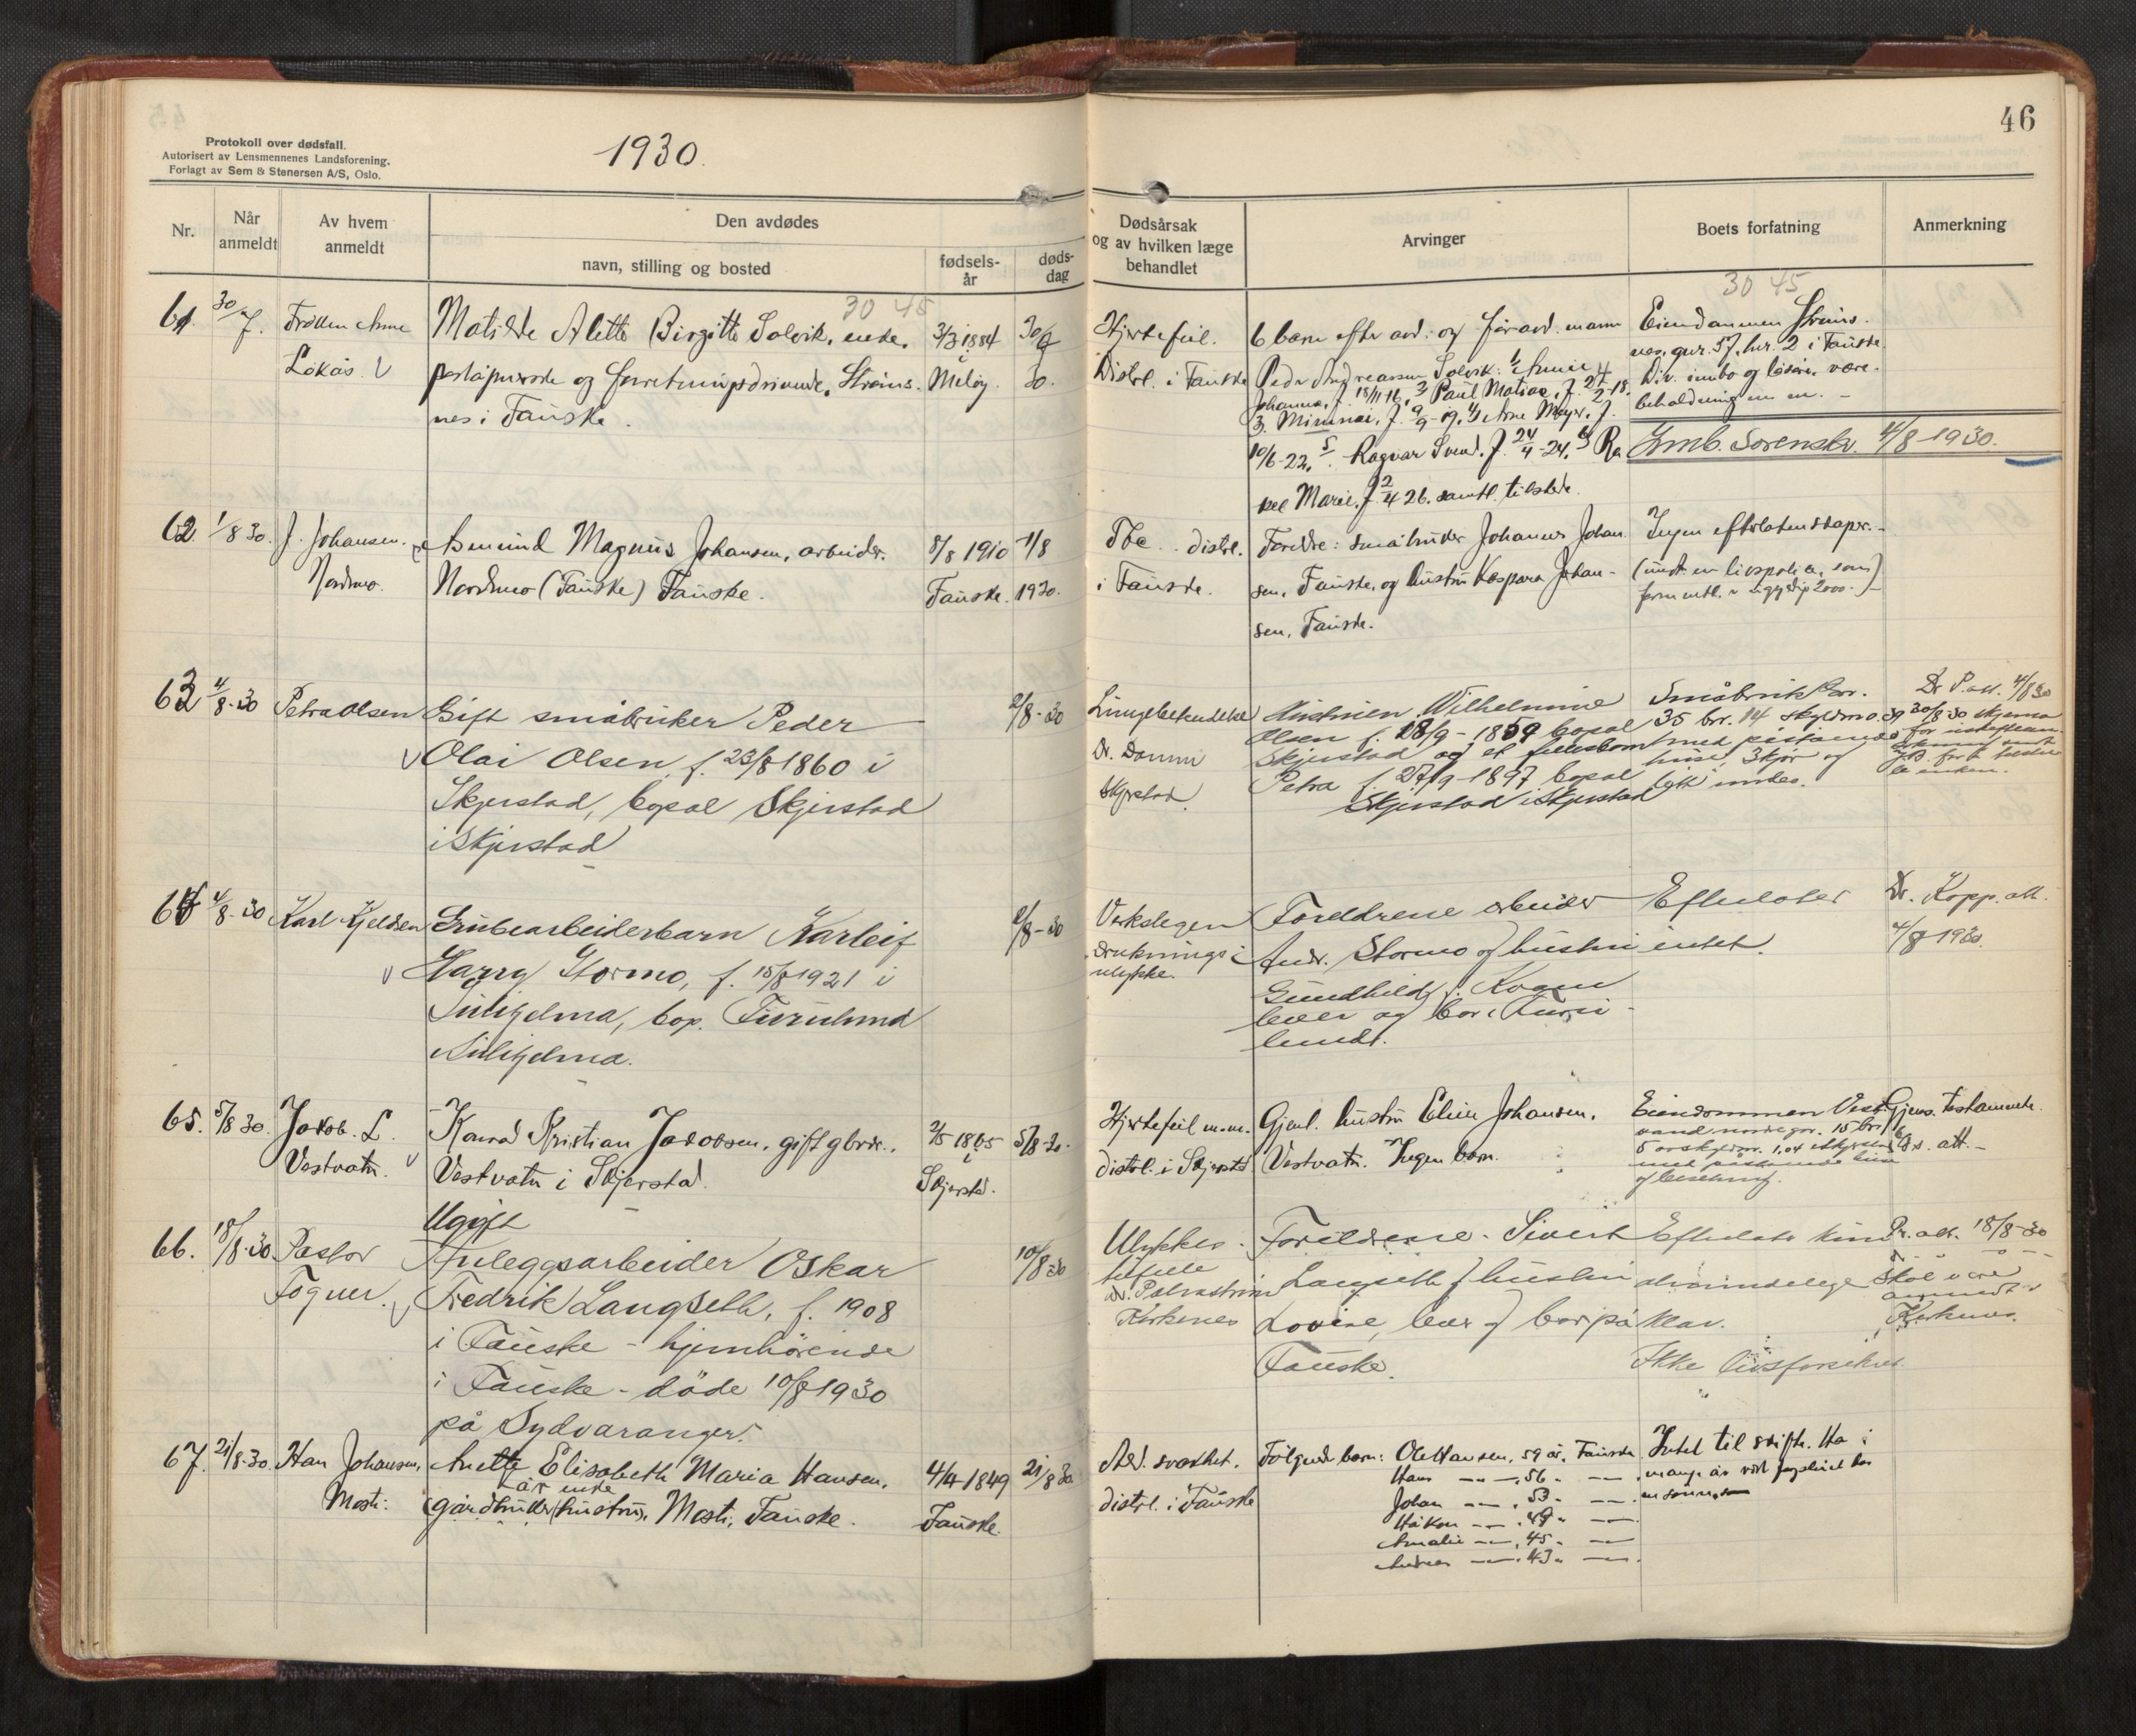 46
Protokoll over dødsfall.
Autorisert av Lensmennenes Landsforening.
Forlagt av Sem & Stenersen A/S, Oslo.
1930.
Nr.
Når anmeldt
Av hvem anmeldt
Den avdødes
navn, stilling og bosted
fødsels-år
døds-dag
Dødsårsak
og av hvilken læge
behandlet
Arvinger
Boets forfatning
Anmerkning
30 45
30 45
61. 30/7.
Frøken Anne
Løkås. V
Matilde Alette Birgitte Solvik, enke,
og
nes i Fauske.
3/3 1884
i
Meløy.
30/7
30.
Hjertefeil.
Distrl. i Fauske
6 barn efter avd. og foravd. mann
Peder Andreassen Solvik: 1/ Annie
Johanna, f. 18/11-16, 2/ Paul Matias, f. 24/2-18.
3/ Minnie, f. 9/9-19, 4/ Arne Meyer, f.
10/6-22, 5/ Ragnar Svend, f. 24/4-24, 6/ Ra
kel Marie, f. 2/4 26. samtl. tilstede.
Eiendommen Strøms-
nes, gnr. 57, bnr. 2 i Fauske.
Div. innbo og løsøre, vare-
beholdning m. m. –
Innb. Sorenskr. 4/8-1930.
62. 1/8 30.
J. Johansen.
Nordmo.
Asmund Magnus Johansen, arbeider.
Nordmo (Fauske) Fauske.
8/8 1910
Fauske.
1/8
1930.
Tbc. distrl.
i Fauske.
Foreldre: småbruker Johannes Johan
sen, Fauske, og hustru Kaspara Johan-
sen, Fauske.
Ingen efterlatenskaper. –
(undt. en livspolise, som
2000.–)
63 4/8-30
Petra Olsen
Gift småbruker Peder
V Olai Olsen f. 23/8 1860 i
Skjerstad, bopæl Skjerstad
i Skjerstad
2/8-30
Lungebetendelse
Dr. Damm
Skjerstad.
Hustruen Wilhelmine
Olsen f. 28/9-1859 bopæl
Skjerstad og et fellesbarn
Petra f. 27/9-1897 bopæl
Skjerstad i Skjerstad
Småbruk gnr.
35 bnr. 14 skyldm. 0.39
med påstående
huse, 3 kjør og
litt innbo.
Dr P. att. 4/8 30
30/8 30 skjema
for
64 4/8-30
Karl Kjeldsen
Grubearbeiderbarn Karleif
V Harry Stormo, f. 15/8 1921 i
Sulitjelma, bop. Furulund
Sulitjelma.
2/8-30
Verkslegen
druknings-
ulykke.
Foreldrene arbeider
Andr. Stormo og hustru
Gundhild f. Kogen
lever og bor i Furu-
lund.
Efterlater
intet.
Dr. Kopp. att.
4/8-1930.
65. 5/8 30.
Jakob L.
Vestvatn. V
Konrad Kristian Jakobsen, gift gbrk.,
Vestvatn i Skjerstad.
2/5 1865
i
Skjerstad.
5/8-30.
Hjertefeil m.m.
distrl. i Skjerstd
Gjenl. hustru Eline Johansen,
Vestvatn. Ingen barn.
Eiendommen Vest
vand nordre gnr. 15 bnr.
5 av skyldm. 1,04
med påstående huse
og besetning.
Gjens. testamente.
att. –
66. 18/8-30.
Pastor
Fogner. V
Ugift
Anleggsarbeider Oskar
Fredrik Langseth, f. 1908
i Fauske – hjemhørende
i Fauske – døde 10/8 1930
på Sydvaranger.
10/8-30
Ulykkes-
tilfelle
dr. Palmstrøm
Kirkenes
Foreldrene. Sivert
Langseth og hustru
Lovise, lever og bor på
Fauske.
Efterlot kun
almindelige
klær.
Ikke livsforsikret.
Pr. att. 18/8-30
Skal være
anmeldt i
Kirkenes.
67. 21/8-30.
Hans Johansen,
Mosti:
Anette Elisabeth Maria Hansen,
enke
(gårdbruker)hustru, Mosti, Fauske.
4/4 1849
Fauske.
21/8 30
Ald. svakhet.
distrl. i Fauske
Følgende barn: Ole Hansen, 59 år, Fauske
Hans — — , 56 „ — —
Johan — — , 53 „ — —
Håkon — — , 49 „ — —
Amalie — — , 45 „ — —
Andreas — — , 43 „ — —.
Intet til skifte. Ha i
mange år vært forpleiet hos
en sønn.